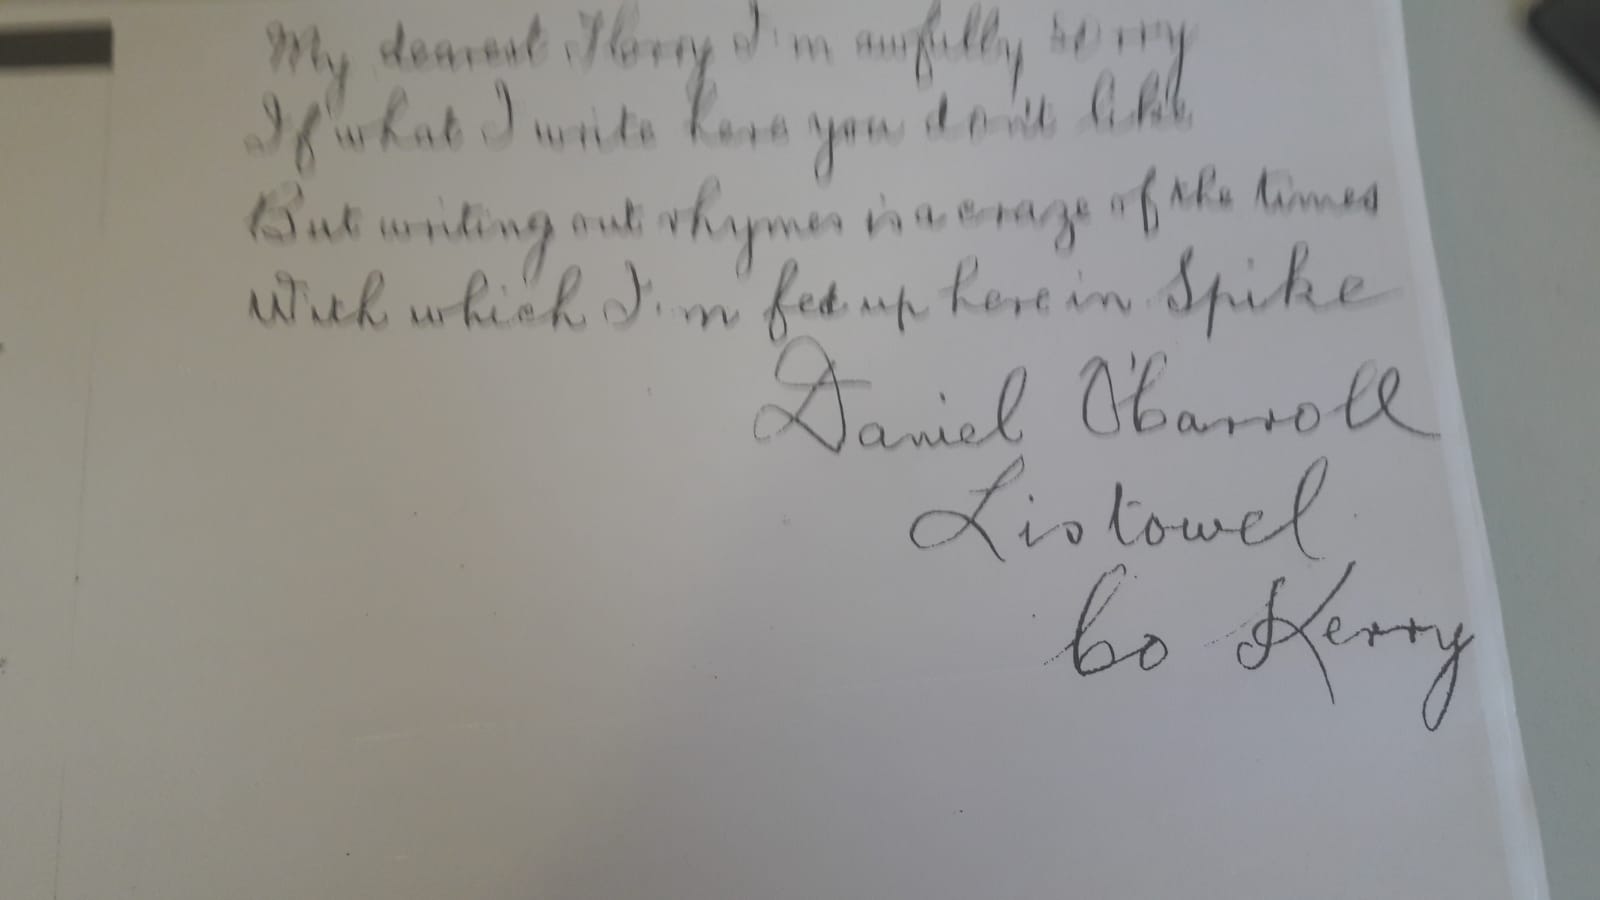 My dearest Florry I'm awfully sorry
If what I write here you don't like
But writing out rhymes is a craze of the times
With which I'm fed up here in Spike
Daniel O'Carroll
Listowel
Co Kerry